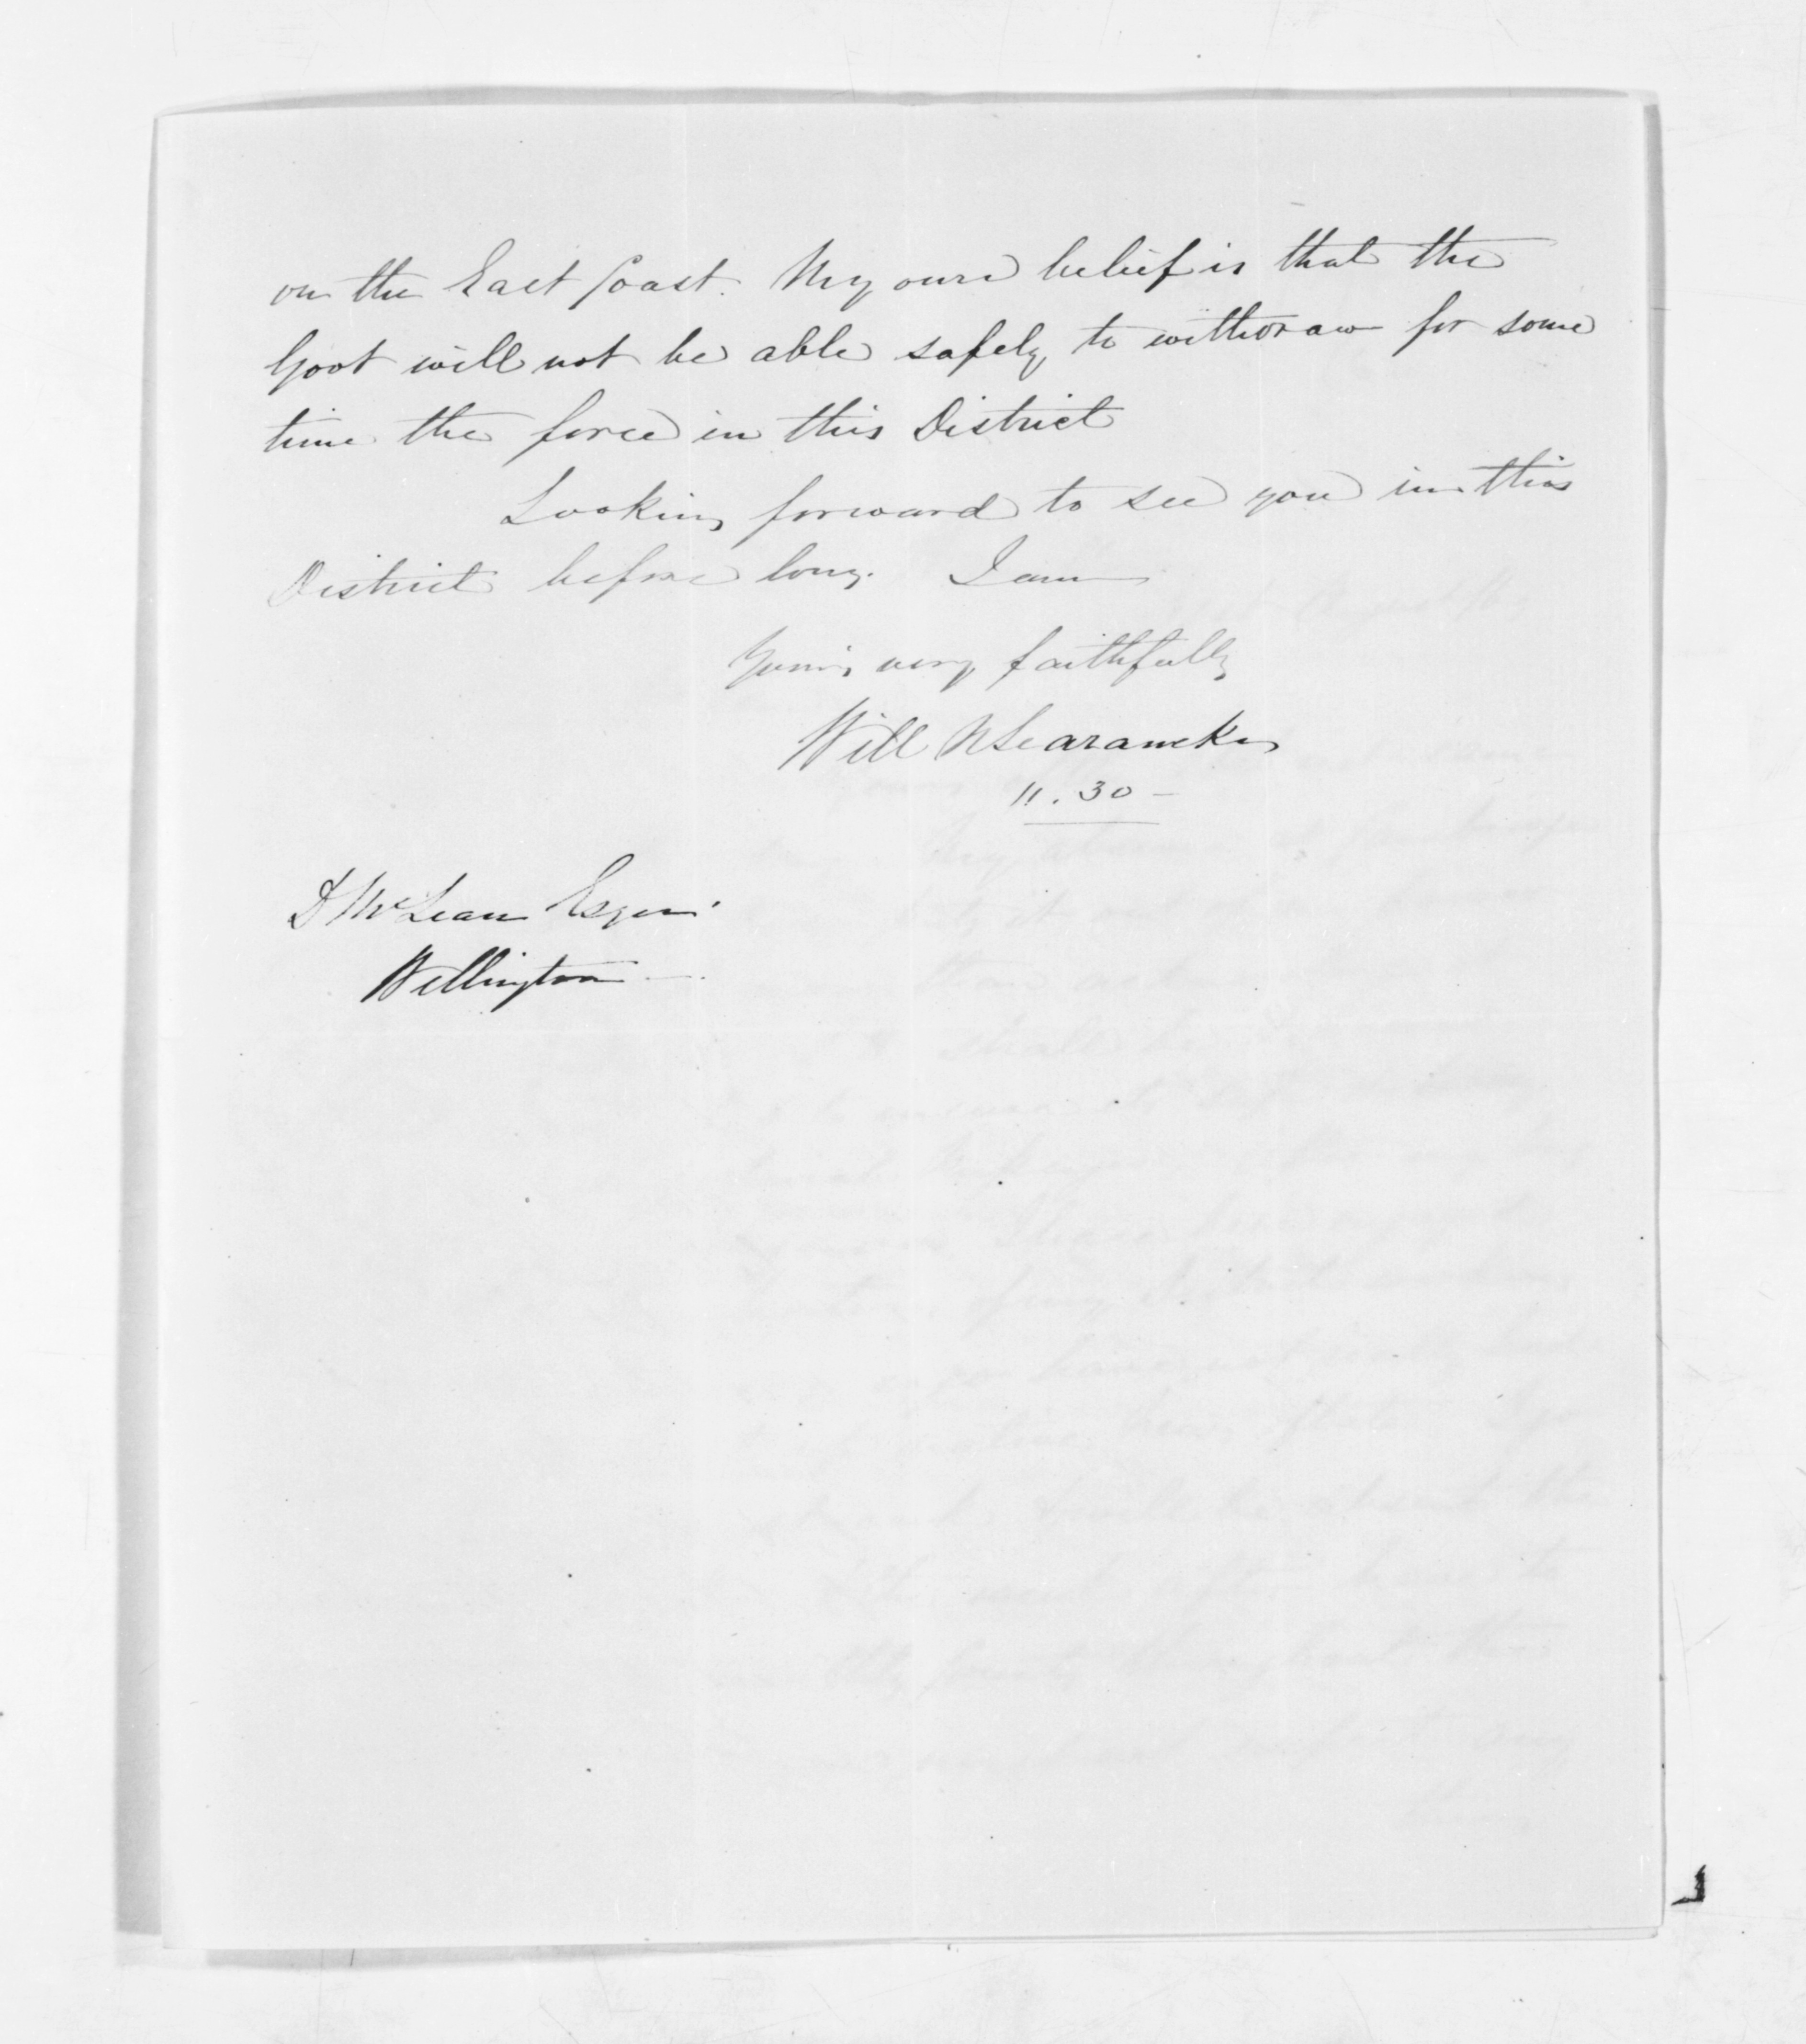 on the East Coast. My own belief is that the
Govt will not be able safely to withdraw for some
time the force in this District
Looking forward to see you in this
District before long. I am
Yours very faithfully
Will N Searancke
11.30 -
D McLean Esqre.
Wellington